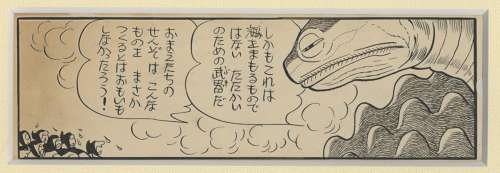 しかもこれは
海をまもるもので
はない たたかい
のための武器だ
おまえたちの
せんぞは こんな
ものを まさか
つくるとはおもいも
しなかったろう!